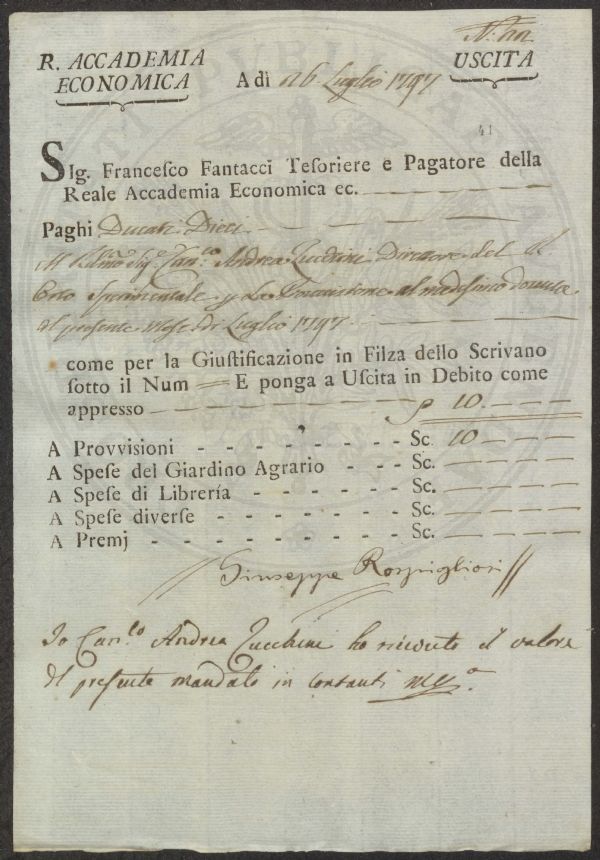 R. ACCADEMIA ECONOMICA
A dì 26 Luglio 1797
USCITA
41
SIg. Franceſco Fantacci Teſoriere e Pagatore della
Reale Accademia Economica ec.
Paghi Ducati Dieci
Andrea Zucchini Direttore del
Orto Sperimentale al medesimo dovuta
il presente Mese di Luglio 1797
come per la Giuſtificazione in Filza dello Scrivano
ſotto il Num E ponga a Uſcita in Debito come
appreſſo 10
A Provviſioni Sc. 10
A Speſe del Giardino Agrario Sc.
A Speſe di Librería Sc.
A Speſe diverſe Sc.
A Premj Sc.
Giuseppe Rospigliosi
Io Can.co Andrea Zucchini ho ricevuto il valore
del preſente mandato in contanti